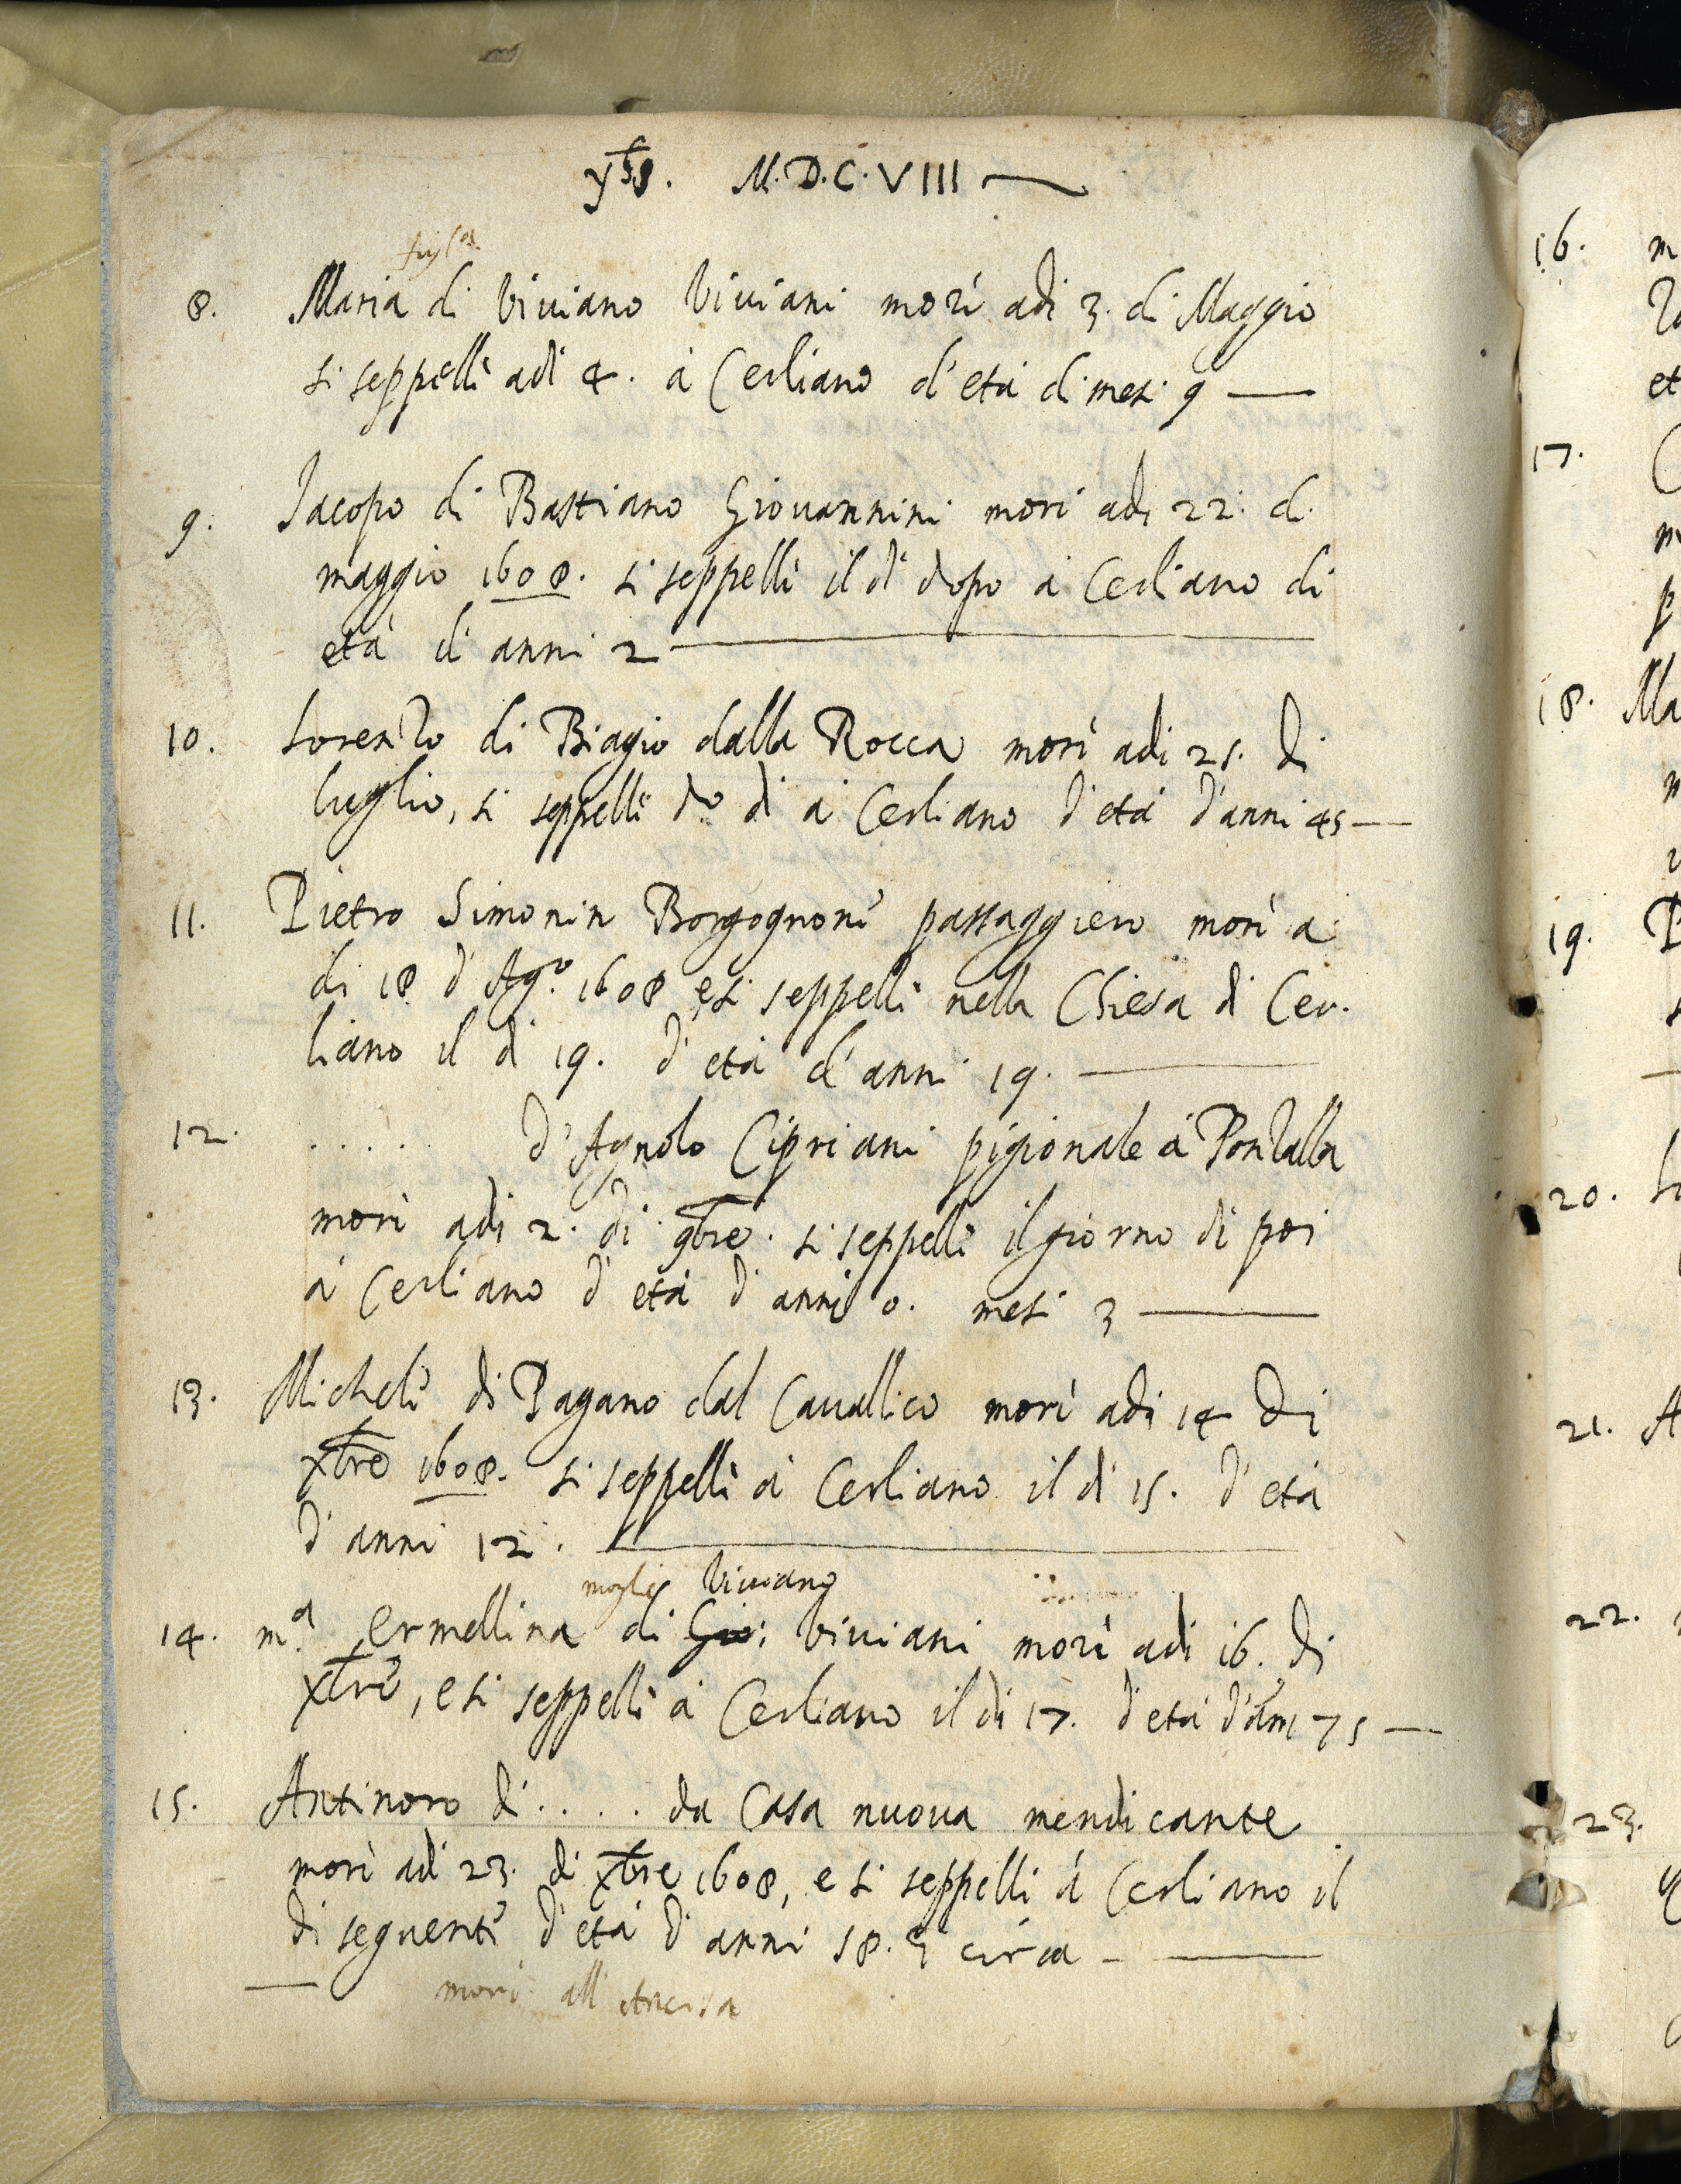 yhs. M.D.C.VIII
figl.a
8. Maria di Viviano Viviani morì adi 3. di Maggio
si seppellì adì 4. à Cerliano d'età di mesi 9
9. Jacopo di Bastiano Giovannini morì adi 22. di
maggio 1608. si seppellì il dì dopo à Cerliano di
età di anni 2
10. Lorenzo di Biagio dalla Rocca morì adi 25. di
luglio, si seppellì d.o dì à Cerliano d'età d'anni 45
11. Pietro Simonin Borgognone passaggiero morì a
di 18 d'Ag.o 1608 e si seppellì nella Chiesa di Cer.
liano il dì 19. d'età d'anni 19.
12. ..... d'Agnolo Cipriani pigionale à Pontalla
morì adi 2. di 9bre. si seppellì il giorno di poi
à Cerliano d'età d'anni 0. mesi 3
13. Michele di Pagano dal Cavallico morì adi 14 di
xbre 1608. si seppellì à Cerliano il dì 15. d'età
d'anni 12.
moglie Viviano
14. m.a Ermellina di Gio: Viviani morì adi 16. di
xbre, e si seppellì à Cerliano il di 17. d'età d'anni 75
15. Antinoro di .... da Casa nuova mendicante
morì adì 23. di xbre 1608, e si seppellì à Cerliano il
dì seguente d'età d'anni 18. circa
morì all'Ancisa
16. m
et
17.
m
p
18. Ma
m
19. P
20.
21. A
22.
23.